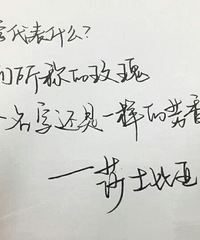 代表什么?
们所称的玫瑰
一名字还是一样的芳香
——莎士比亚